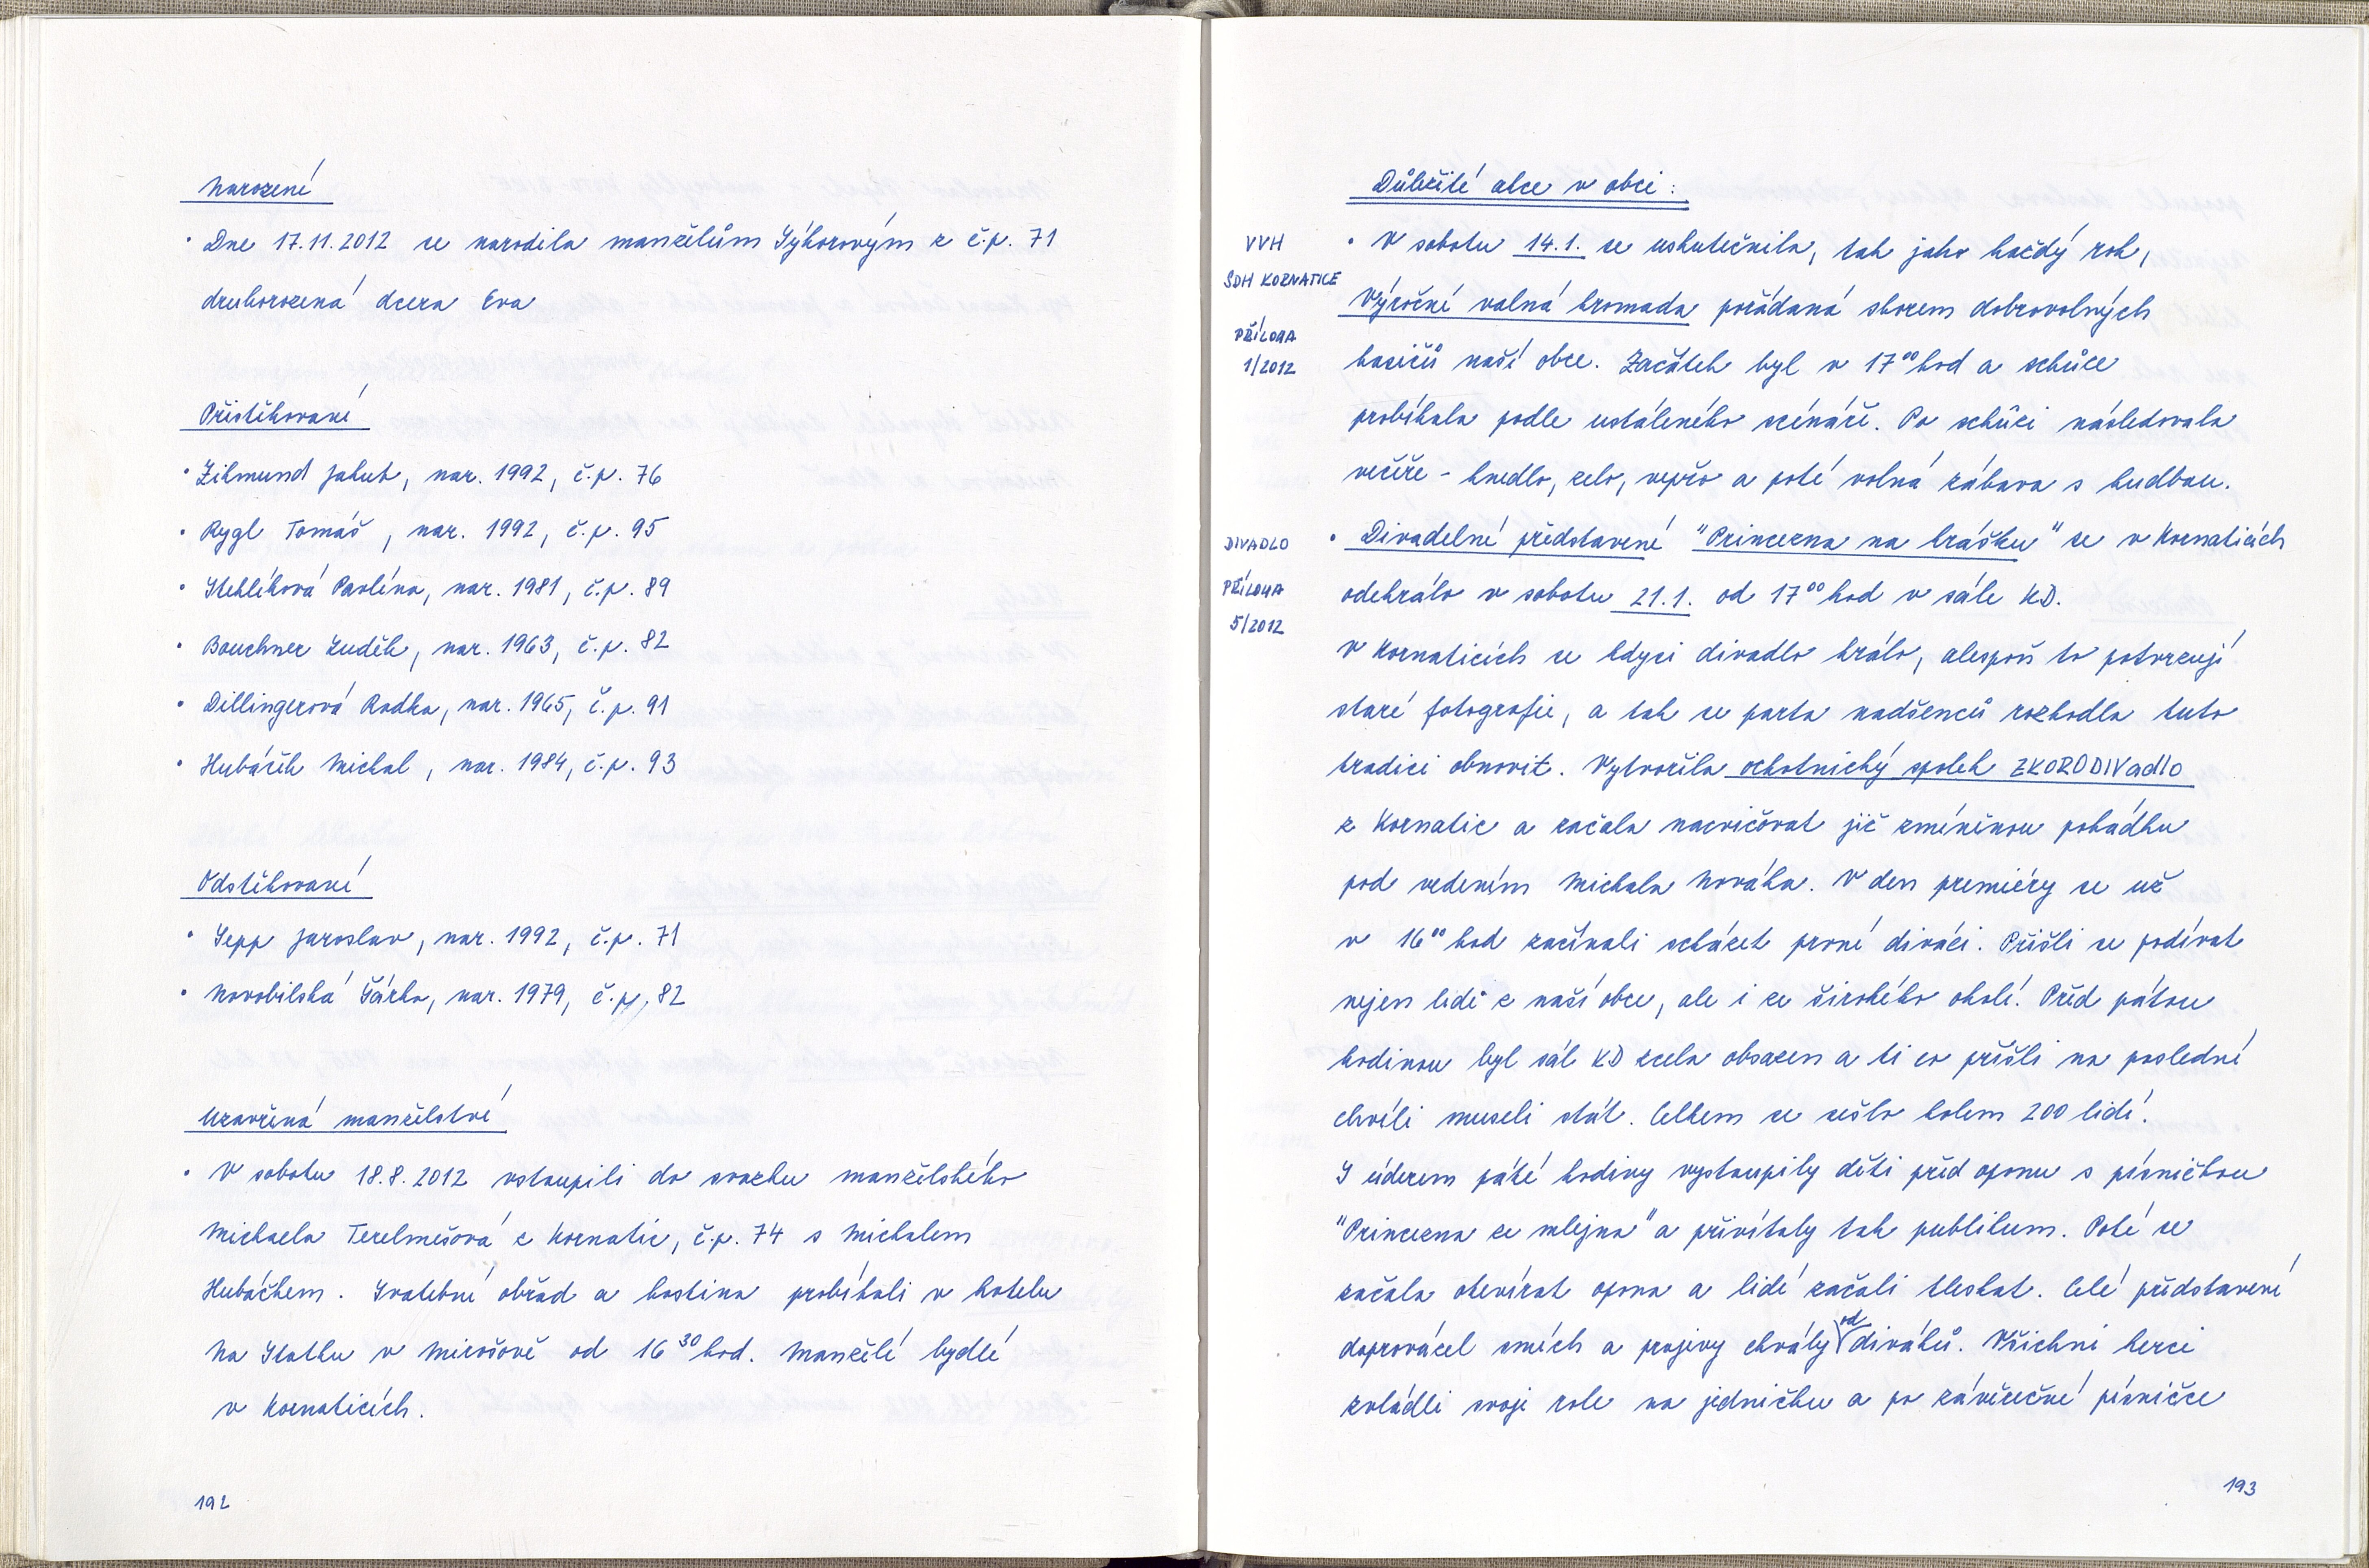 Narození
• Dne 17.11.2012 se narodila manželům Sýkorovým z č.p. 71
druhorozená dcera Eva
Přistěhovaní
• Zikmund Jakub, nar. 1992, č.p. 76
• Rygl Tomáš, nar. 1992, č.p. 95
• Stehlíková Pavlína, nar. 1981, č.p. 89
• Bouchner Luděk, nar. 1963, č.p. 82
• Dillingerová Radka, nar. 1965, č.p. 91
• Hubáček Michal, nar. 1984, č.p. 93
Odstěhovaní
• Sepp Jaroslav, nar. 1992, č.p. 71
• Novobilská Šárka, nar. 1979, č.p. 82
Uzavřená manželství
• V sobotu 18.8.2012 vstoupili do svazku manželského
Michaela Terelmešová z Kornatic, č.p. 74 s Michalem
Hubáčkem. Svatební obřad a hostina probíhali v hotelu
Na Statku v Mirošově od 16 30 hod. Manželé bydlí
v Kornaticích.
192
Důležité akce v obci:
VVH
SDH KORNATICE
PŘÍLOHA
1/2012
• V sobotu 14.1. se uskutečnila, tak jako každý rok,
Výroční valná hromada pořádaná sborem dobrovolných
hasičů naší obce. Začátek byl v 17 00 hod a schůze
probíhala podle ustáleného scénáře. Po schůzi následovala
večeře - knedlo, zelo, vepřo a poté volná zábava s hudbou.
DIVADLO
PŘÍLOHA
5/2012
• Divadelní představení "Princezna na hrášku" se v Kornaticích
odehrálo v sobotu 21.1. od 17 00 hod v sále KD.
V Kornaticích se kdysi divadlo hrálo, alespoň to potvrzují
staré fotografie, a tak se parta nadšenců rozhodla tuto
tradici obnovit. Vytvořila ochotnický spolek ZKORODIVadlo
z Kornatic a začala nacvičovat již zmíněnou pohádku
pod vedením Michala Nováka. V den premiéry se už
v 16 00 hod začínali scházet první diváci. Přišli se podívat
nejen lidé z naší obce, ale i ze širokého okolí. Před pátou
hodinou byl sál KD zcela obsazen a ti co přišli na poslední
chvíli museli stát. Celkem se sešlo kolem 200 lidí.
S úderem páté hodiny vystoupily děti před oponu s písničkou
"Princezna ze mlejna" a přivítaly tak publikum. Poté se
začala otevírat opona a lidé začali tleskat. Celé představení
doprovázel smích a projevy chvály od diváků. Všichni herci
zvládli svoji role na jedničku a po závěrečné písničce
193